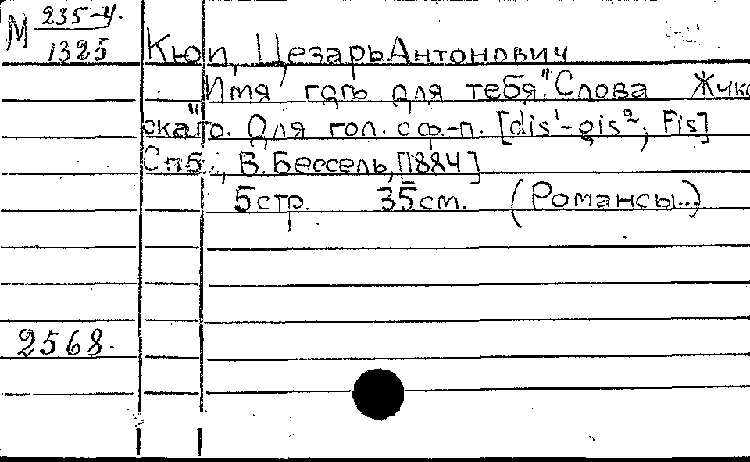 М 235-4.
1325
Кюи, Цезарь Антонович
Имя гопь для тебя". Слова Жуко
ска"го. Для гол. с ф.-п. [dis¹-gis², Fis]
Спб., В. Бессель, [1884]
5 стр. 35 см. (Романсы..)
2568.